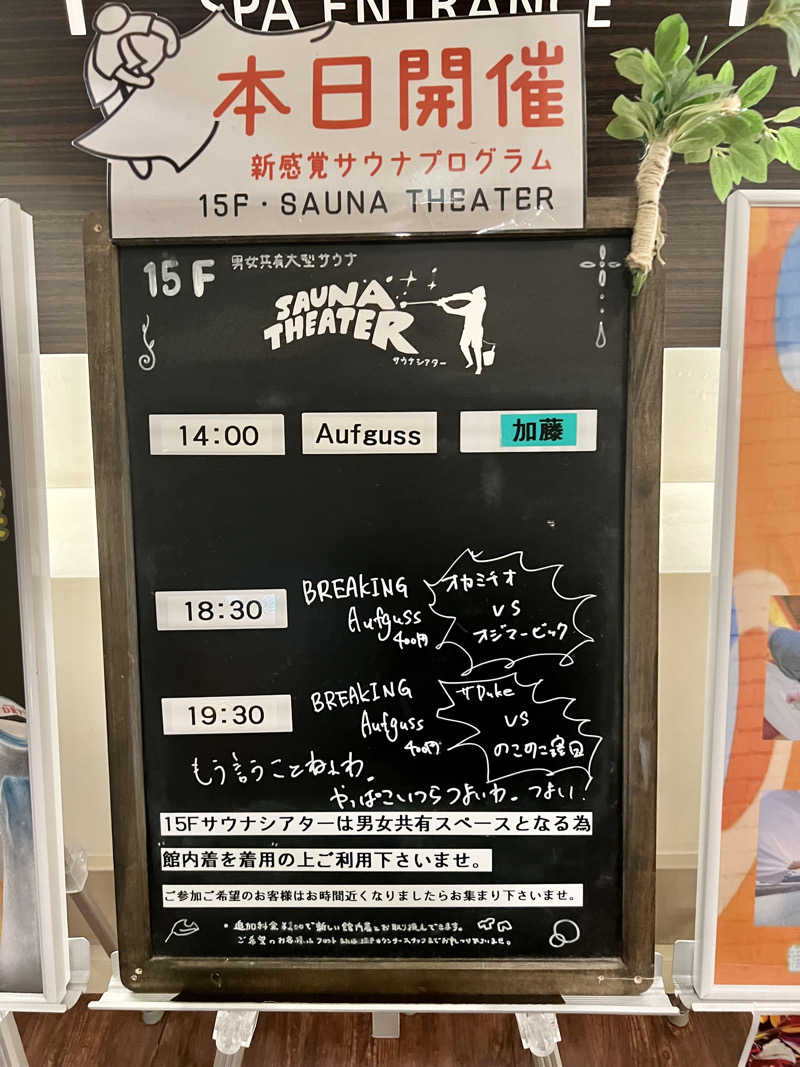 SPA ENTRANCE
本日開催
新感覚サウナプログラム
15F・SAUNA THEATER
15F 男女共有大型サウナ
SAUNA
THEATER
サウナシアター
14:00 Aufguss 加藤
18:30 BREAKING Aufguss 400円 オカミチオ VS オジマービック
19:30 BREAKING Aufguss 400円 ザDuke VS のこのこ
もう言うことねぇわ。
やっぱこいつらつよいわ。つよい!
15Fサウナシアターは男女共有スペースとなる為
館内着を着用の上ご利用下さいませ。
ご参加ご希望のお客様はお時間近くなりましたらお集まり下さいませ。
追加料金 で新しい館内着とお取り換えできます。
ご希望のお客様は フロント